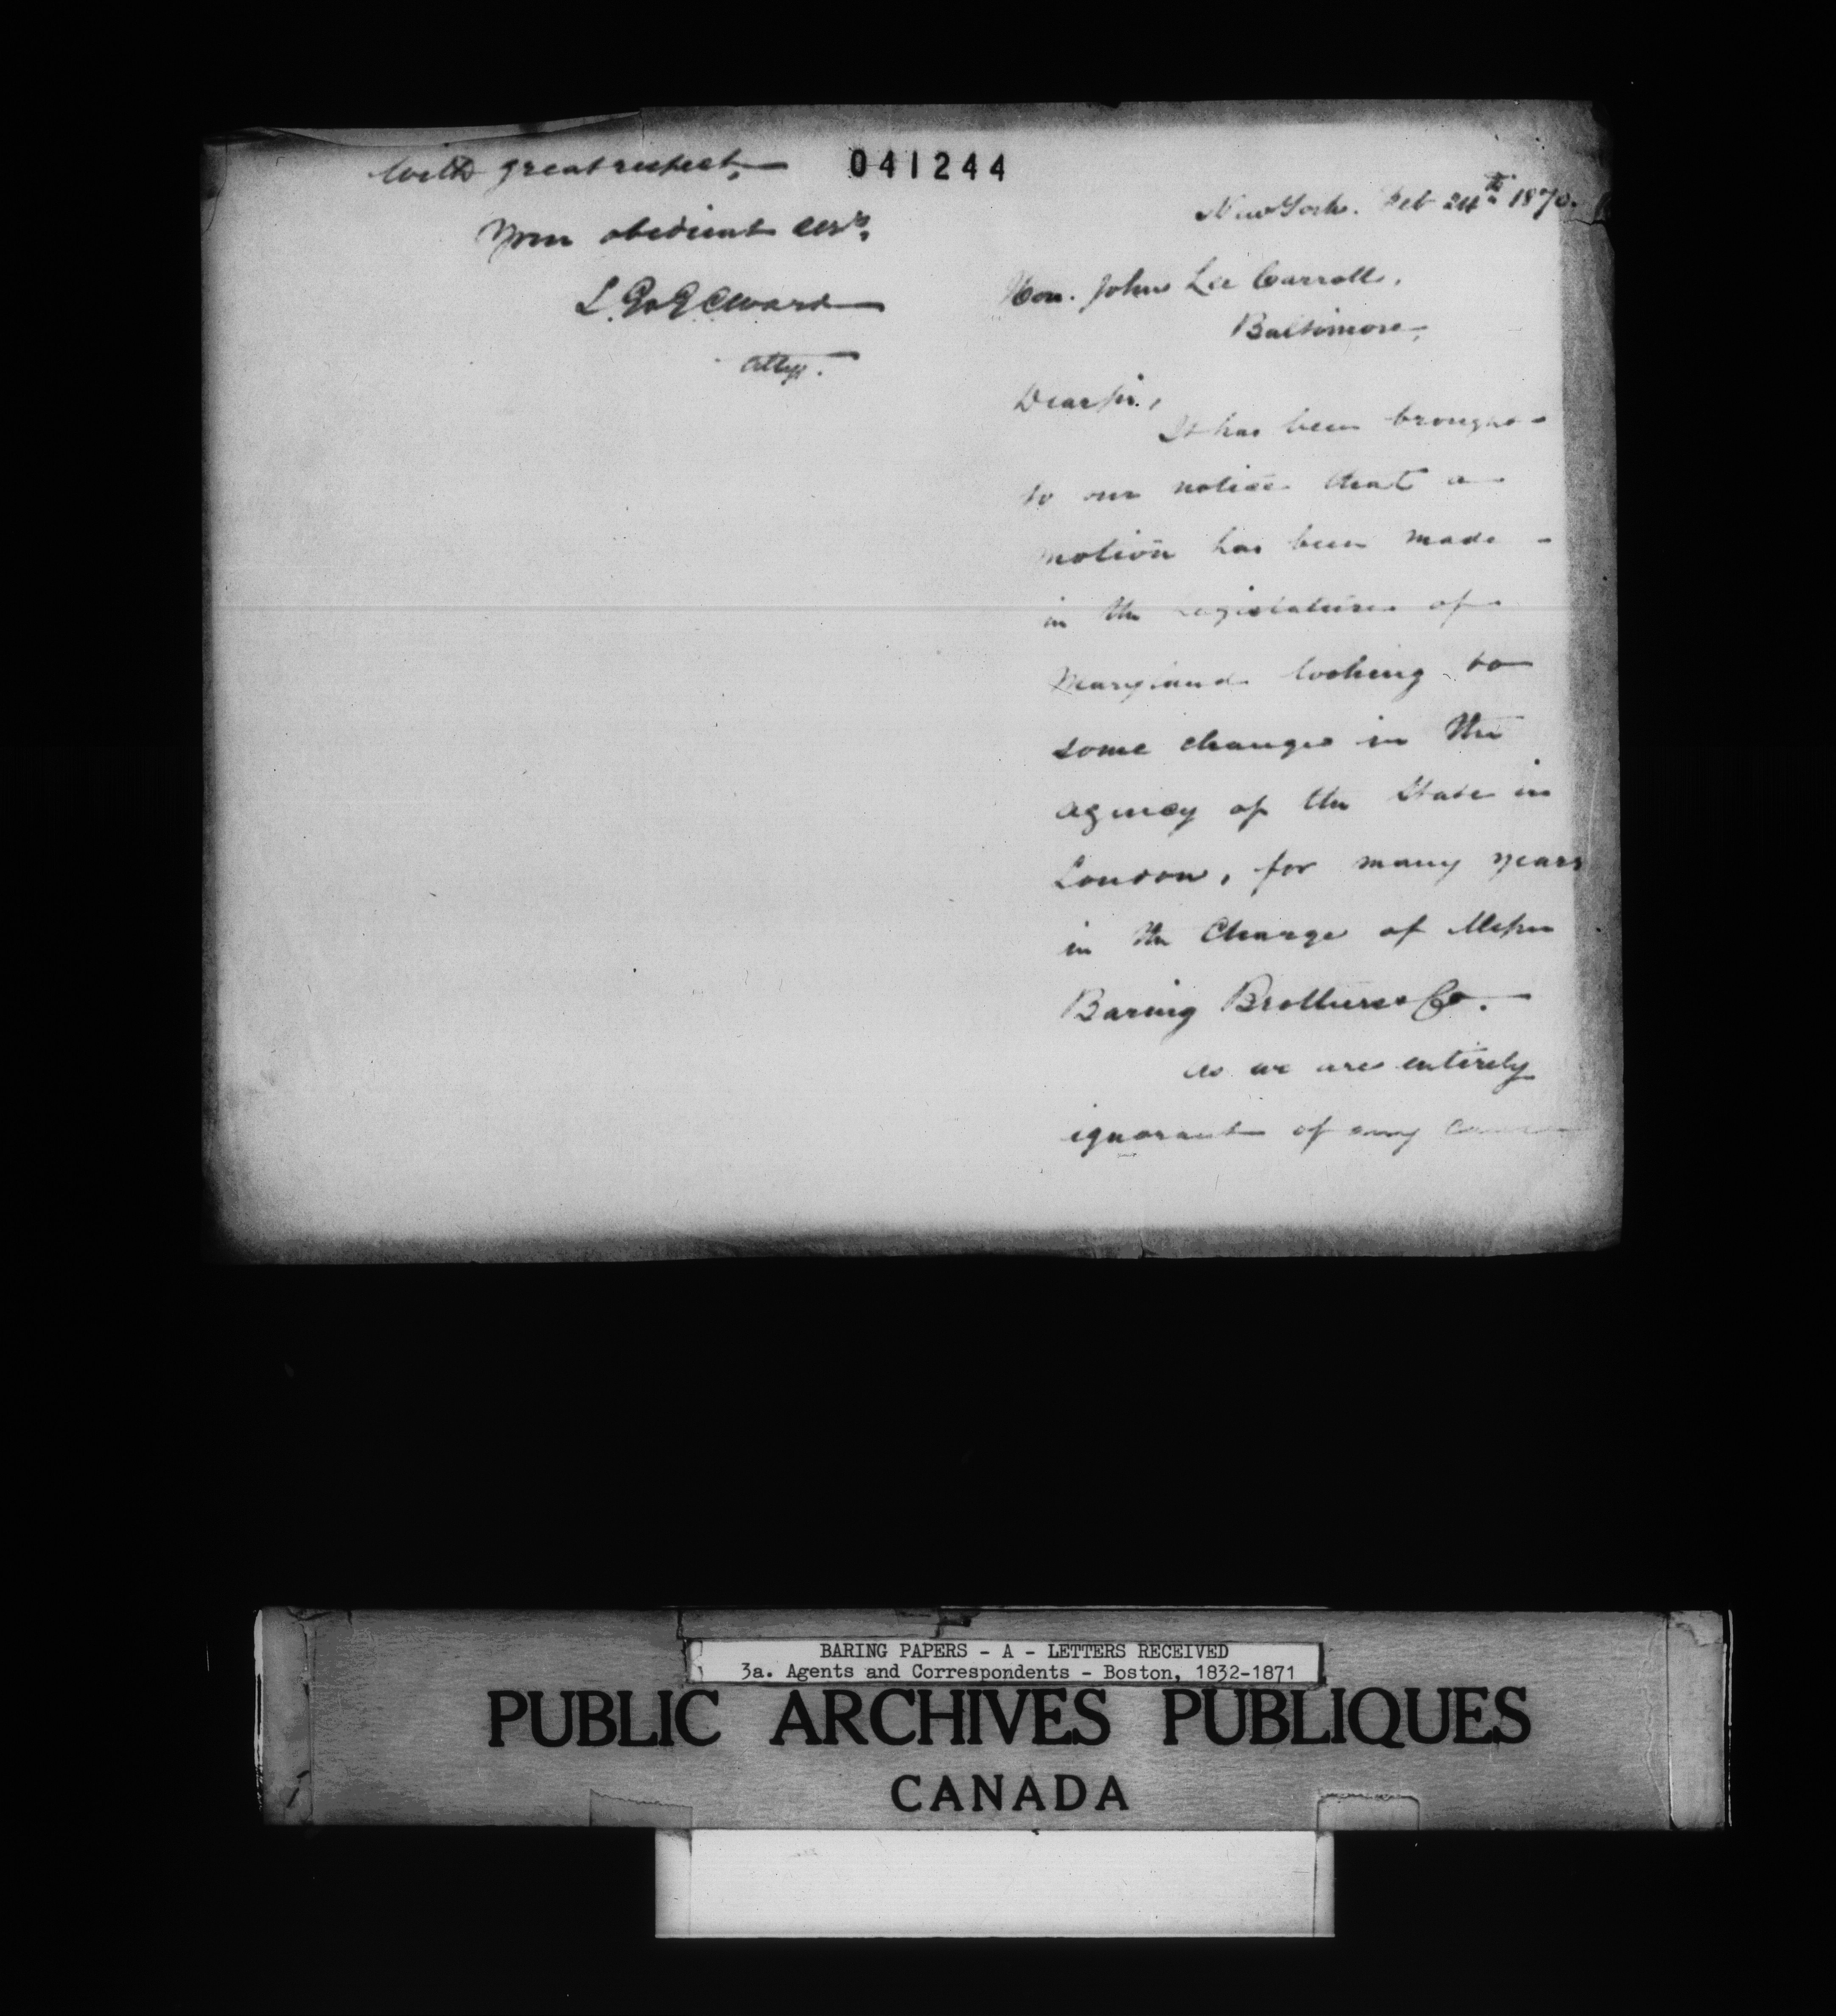 With great respect,
041244
Your obedient servts,
S. G. & G. C. Ward
Attys.
New York. Feb 24th 1870.
Hon. John Lee Carroll,
Baltimore,
Dear Sir,
It has been brought
to our notice that a
motion has been made
in the Legislature of
Maryland looking to
some changes in the
agency of the State in
London, for many years
in the Charge of Messrs
Baring Brothers & Co.
As we are entirely
ignorant of any
BARING PAPERS - A - LETTERS RECEIVED
3a. Agents and Correspondents - Boston, 1832-1871
PUBLIC ARCHIVES PUBLIQUES
CANADA